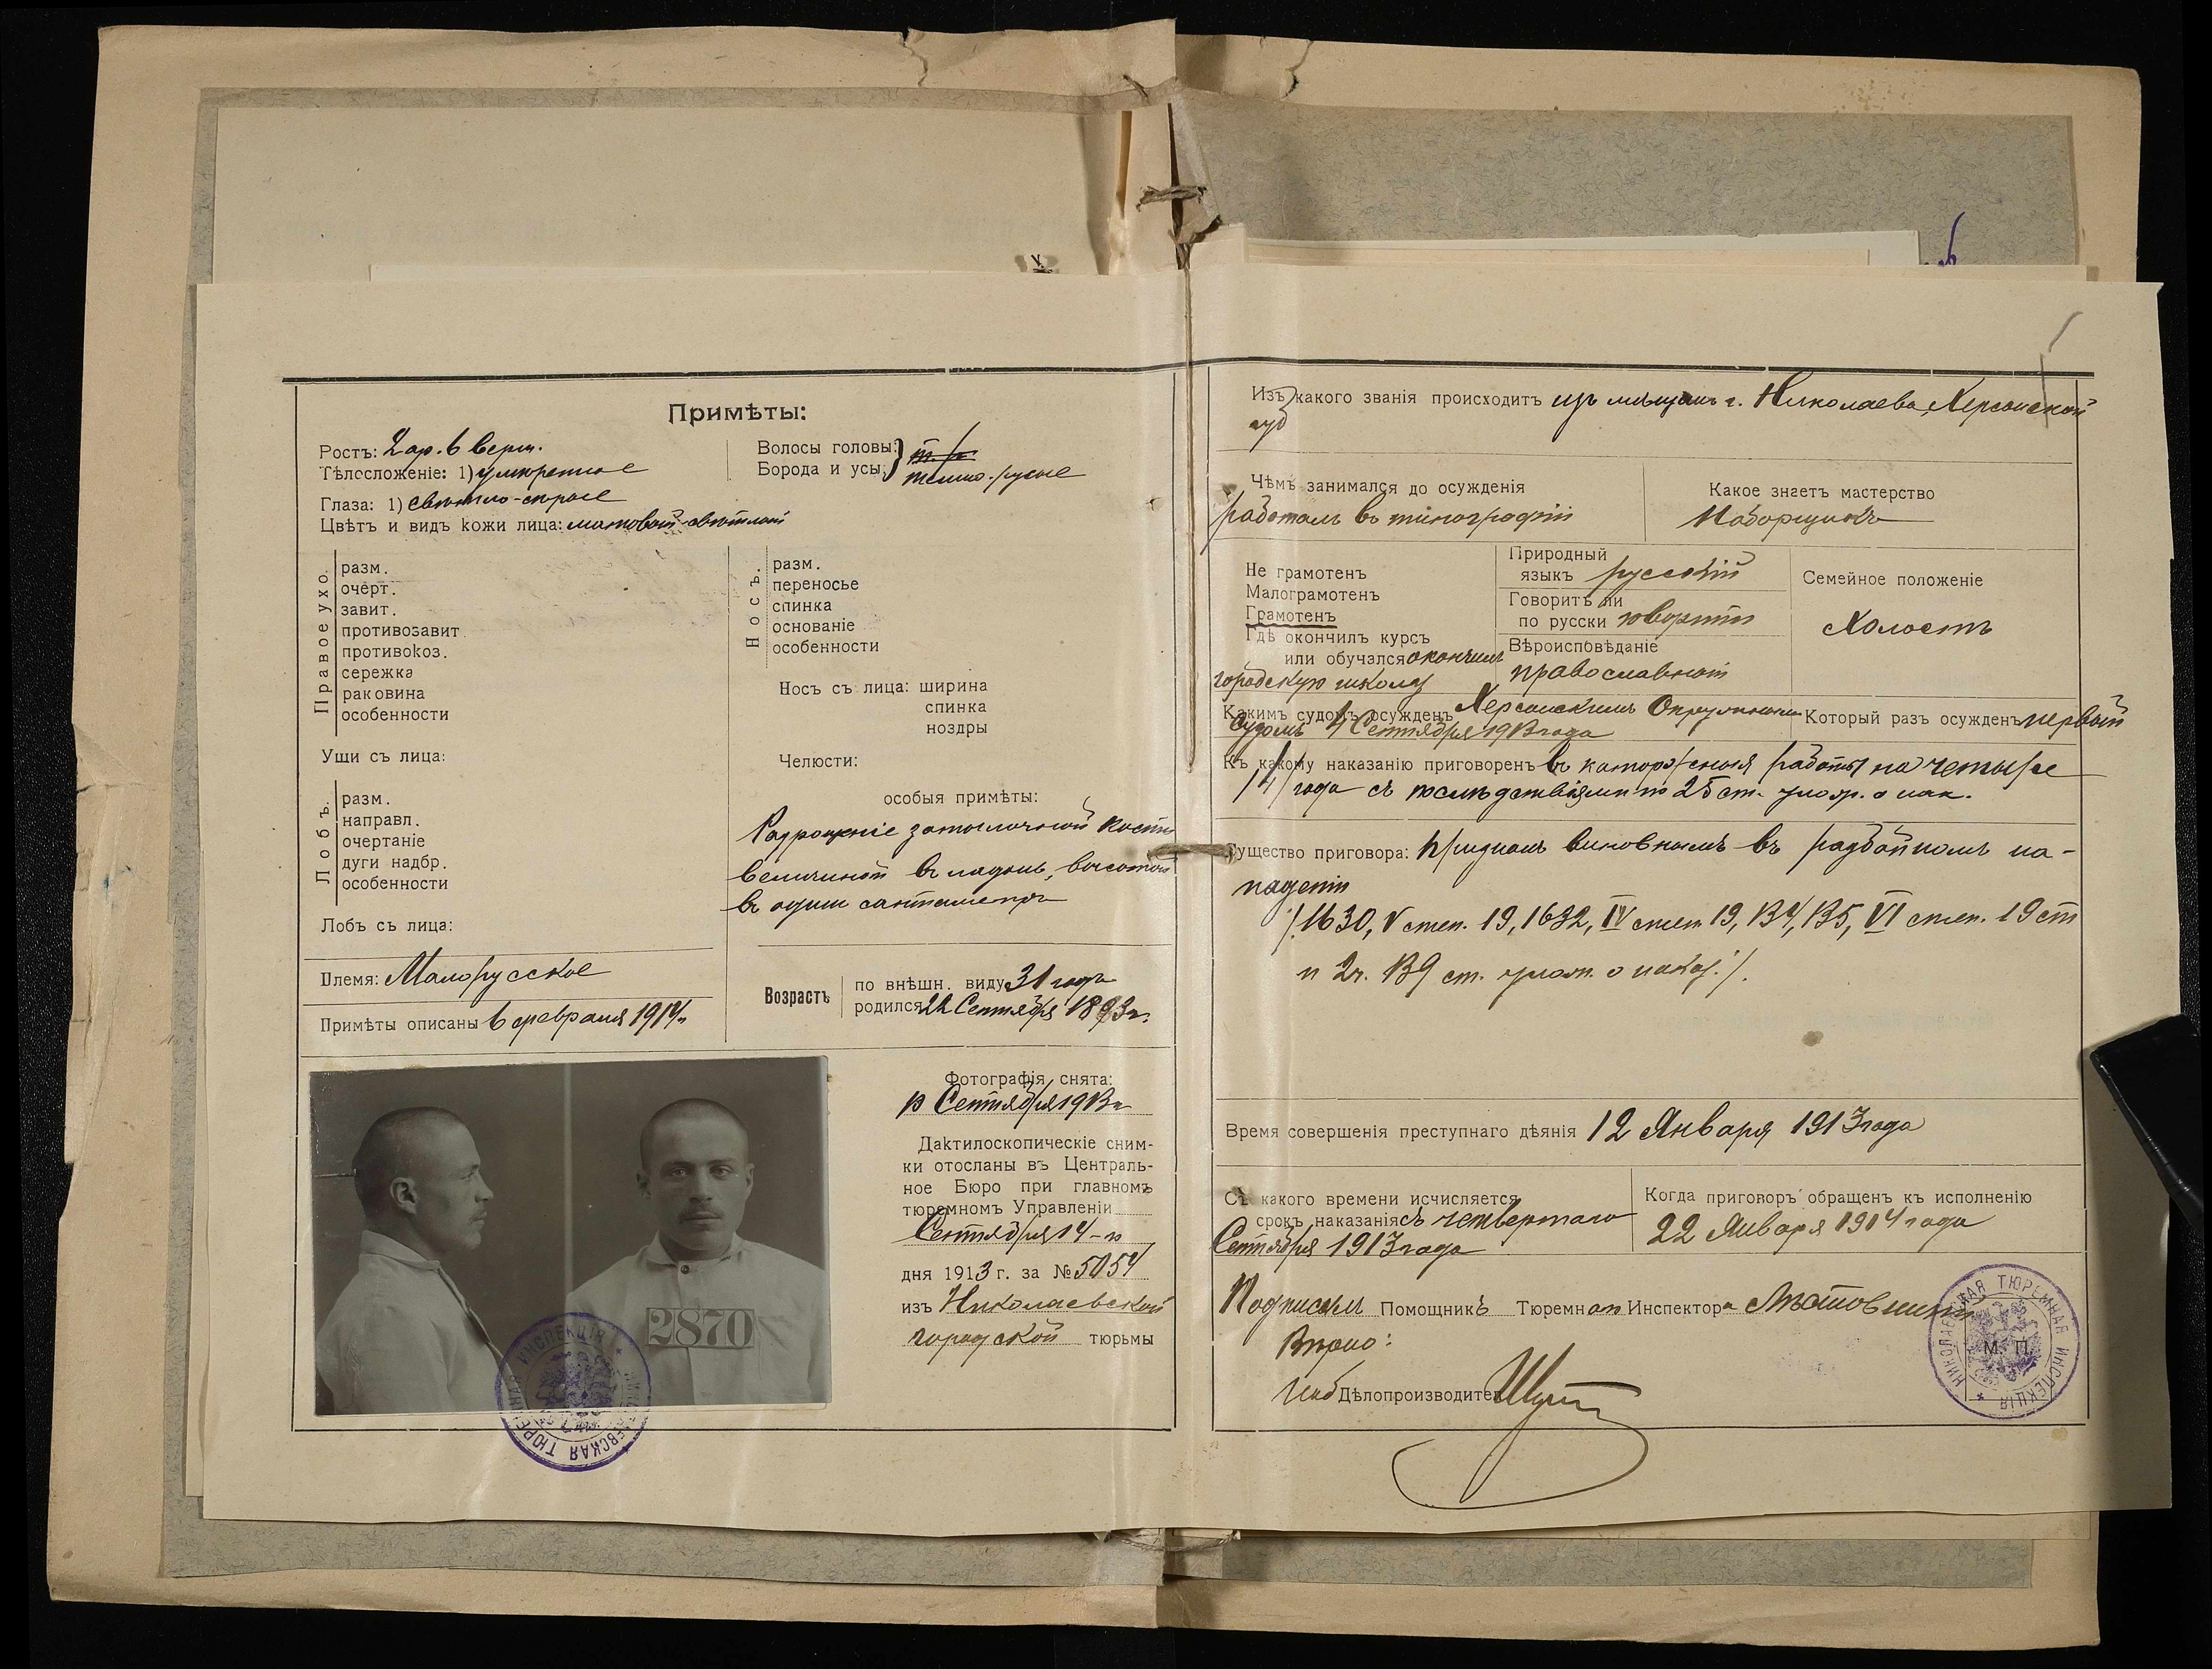 Примѣты:
Ростъ: 2 ар. 6 верш.
Тѣлосложеніе: 1) умѣренное
Глаза: 1) свѣтло-сѣрые
Цвѣтъ и видъ кожи лица: матовый-свѣтлый
Волосы головы:
Борода и усы: темно-русые
Правое ухо.
разм.
очерт.
завит.
противозавит.
противокоз.
сережка
раковина
особенности
Уши съ лица:
Лобъ.
разм.
направл.
очертаніе
дуги надбр.
особенности
Лобъ съ лица:
Носъ.
разм.
переносье
спинка
основаніе
особенности
Носъ съ лица: ширина
спинка
ноздры
Челюсти:
особыя примѣты:
Разрощеніе затылочной кости
величиной въ ладонь, высотою
въ одинъ сантиметръ
Племя: Малорусское
Примѣты описаны 6 февраля 1914 г.
Возрастъ
по внѣшн. виду 31 годъ
родился 22 Сентября 1883 г.
Фотографія снята:
Сентября 1913 г.
Дактилоскопическіе сним-
ки отосланы въ Централь-
ное Бюро при главномъ
тюремномъ Управленіи
Сентября 14-го
дня 1913 г. за № 5054
изъ Николаевской
городской тюрьмы
2870
НИКОЛАЕВСКАЯ ТЮРЕМНАЯ ИНСПЕКЦІЯ
Изъ какого званія происходитъ изъ мѣщанъ г. Николаева, Херсонской
губ
Чѣмъ занимался до осужденія
работалъ въ типографіи
Какое знаетъ мастерство
Наборщикъ
Не грамотенъ
Малограмотенъ
Грамотенъ
Гдѣ окончилъ курсъ
или обучался окончилъ
городскую школу
Природный
языкъ русскій
Говоритъ ли
по русски говоритъ
Вѣроисповѣданіе
православный
Семейное положеніе
Холостъ
Какимъ судомъ осужденъ Херсонскимъ Окружнымъ
Судомъ 4 Сентября 1913 года
Который разъ осужденъ первый
Къ какому наказанію приговоренъ въ каторжныя работы на четыре
/4/ года съ послѣдствіями по 25 ст. улож. о нак.
Существо приговора: признанъ виновнымъ въ разбойномъ на-
паденіи
/1630, V степ. 19, 1632, IV степ 19, 134, 135, VI степ. 19 ст
и 2 ч. 139 ст. улож. о наказ./.
Время совершенія преступнаго дѣянія 12 Января 1913 года
Съ какого времени исчисляется
срокъ наказанія съ четвертаго
Сентября 1913 года
Когда приговоръ обращенъ къ исполненію
22 Января 1914 года
Подписалъ Помощникъ Тюремнаго Инспектора
Вѣрно:
Дѣлопроизводителя
М. П.
НИКОЛАЕВСКАЯ ТЮРЕМНАЯ ИНСПЕКЦІЯ